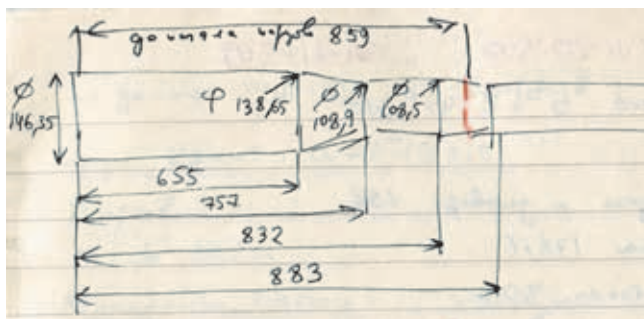 до начала нарезов 859
φ 146,35
φ 138,65
φ 108,9
φ 108,5
655
757
832
883